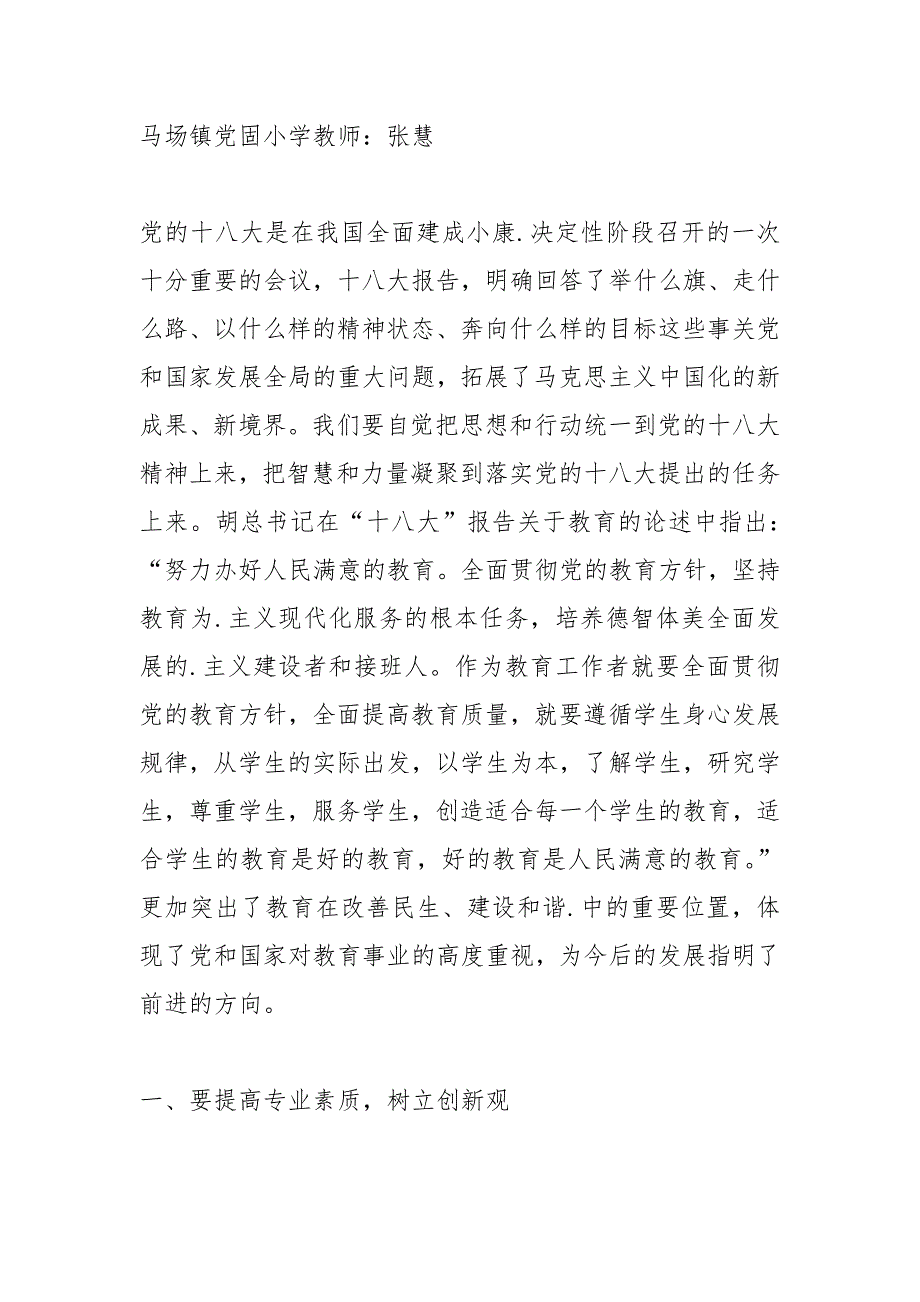 马场镇党固小学教师：张慧
党的十八大是在我国全面建成小康.决定性阶段召开的一次
十分重要的会议，十八大报告，明确回答了举什么旗、走什
么路、以什么样的精神状态、奔向什么样的目标这些事关党
和国家发展全局的重大问题，拓展了马克思主义中国化的新
成果、新境界。我们要自觉把思想和行动统一到党的十八大
精神上来，把智慧和力量凝聚到落实党的十八大提出的任务
上来。胡总书记在“十八大”报告关于教育的论述中指出：
“努力办好人民满意的教育。全面贯彻党的教育方针，坚持
教育为.主义现代化服务的根本任务，培养德智体美全面发
展的.主义建设者和接班人。作为教育工作者就要全面贯彻
党的教育方针，全面提高教育质量，就要遵循学生身心发展
规律，从学生的实际出发，以学生为本，了解学生，研究学
生，尊重学生，服务学生，创造适合每一个学生的教育，适
合学生的教育是好的教育，好的教育是人民满意的教育。”
更加突出了教育在改善民生、建设和谐.中的重要位置，体
现了党和国家对教育事业的高度重视，为今后的发展指明了
前进的方向。
一、要提高专业素质，树立创新观